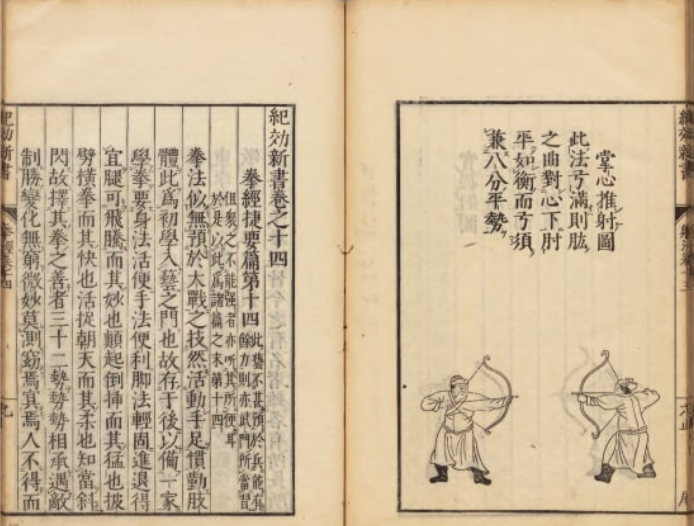 紀効新書
掌心推射圖
此法弓滿則肱
之曲對心下肘
平如衡而弓須
兼八分平勢
紀効新書卷之十四
拳經捷要篇第十四
此藝不甚預於兵能有
餘力則亦武門所當習
但衆之不能强者亦听其所便耳
於是以此爲諸篇之末第十四
拳法似無預於大戰之技然活動手足慣勤肢
體此爲初學入藝之門也故存于後以備一家
學拳要身法活便手法便利脚法輕固進退得
宜腿可飛騰而其妙也顛起倒揷而其猛也披
劈橫拳而其快也活捉朝天而其柔也知當斜
閃故擇其拳之善者三十二勢勢勢相承遇敵
制勝變化無窮微妙莫測窈焉冥焉人不得而
紀効新書
拳經卷十四
九